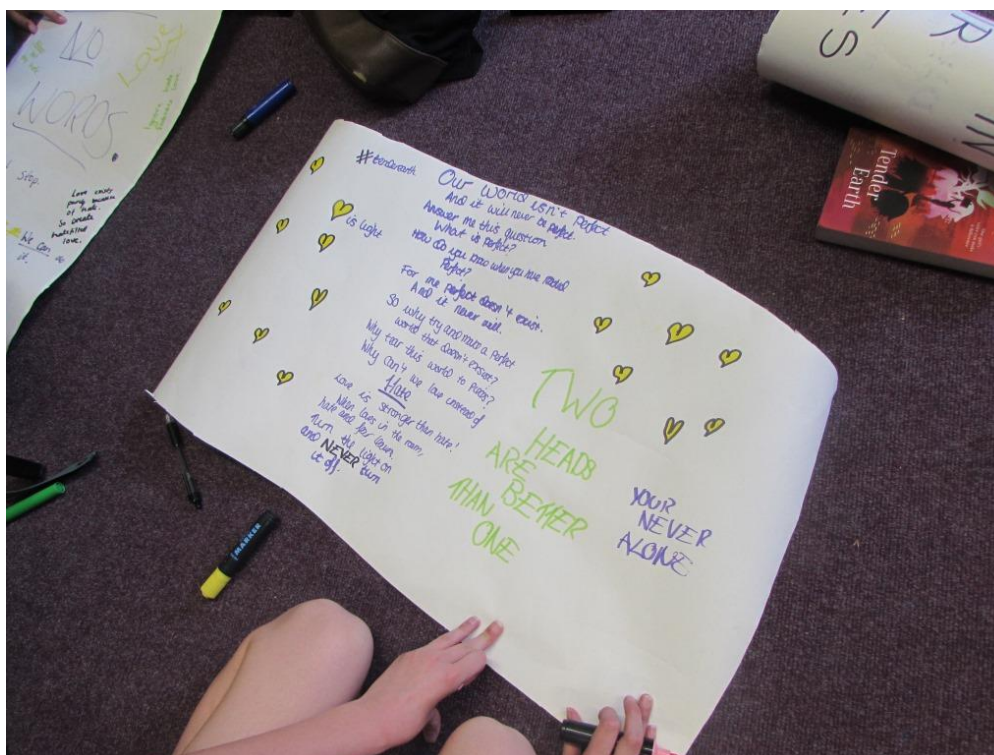 NO
WORDS.
LOVE
Step
Love exists
of hate.
So create
love.
We can
it.
#tenderearth
is light
Our world isn't perfect
And it will never be perfect
Answer me this question
What is perfect?
How do you know when you have reached
Perfect?
For me perfect doesn't exist.
And it never will.
So why try and make a perfect
world that doesn't exsist?
Why tear this world to pieces?
Why can't we love instead of
Hate
Love is stronger than hate!
When loves in the room,
hate and fear
Turn the light on
and NEVER turn
it off.
TWO
HEADS
ARE
BETTER
THAN
ONE
YOUR
NEVER
ALONE
MARKER
R
IN
S
Tender
Earth